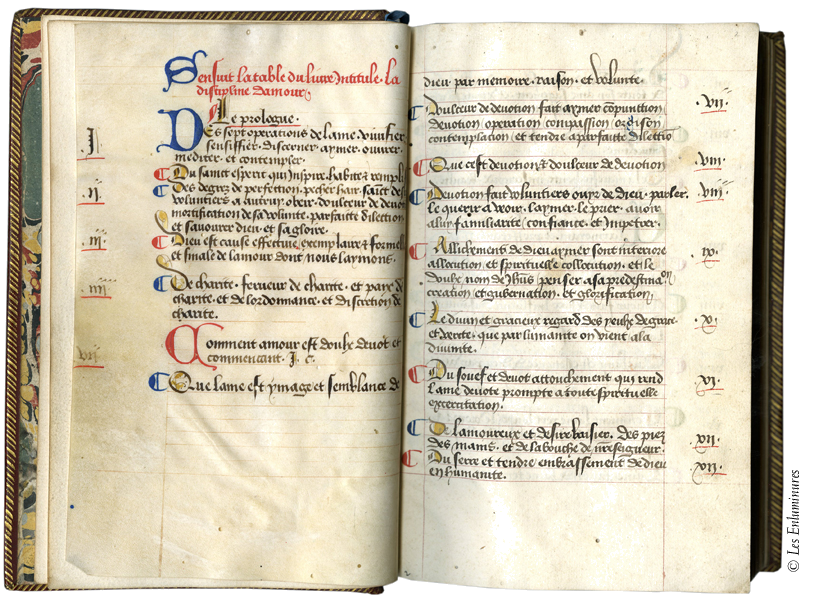 Sensuit la table du livre intitule. la
discipline damour.
Le prologue.
Des sept operations de lame. vivifier
sensiffier. discerner. aymer. ouvrer.
mediter. et contempler.
j.
Du sainct esperit qui inspire. habite. rempli
Des degrez de perfection. preser hair. sainct des
voluntiers a autruy. obeir. doulceur de devo
mortification de sa volunte. parfaicte dilection
et savourer dieu. et sa gloire.
ij.
Dieu est cause effective. exemplaire et formelle
et finale de lamour dont nous laymons.
iij.
De charite. ferveur de charite. et paix de
charite. et de lordonnance. et discretion de
charite.
iiij.
Comment amour est doulx devot et
commencant. J. c.
vij
Que lame est ymage et semblance de
dieu par memoire. raison. et volunte.
Doulceur de devotion fait aymer componction
devotion operation compassion oraison
contemplation et tendre a parfaicte dilectio
vij.
Que cest devotion et doulceur de devotion
viij.
Devotion fait voluntiers ouyr de dieu. parler.
le querir a veoir. laymer. le prier. avoir
a luy familiarite. confiance. et impetrer.
viij.
Allichement de dieu aymer sont interiore
allocution. et spirituelle collocution. et le
doulx nom de Jhus penser a sa predestinaon
creation et gubernation. et glorification.
ix.
Le divin et gracieux regard des yeulx de grace
et verite. que par lumanite on vient a la
divinite.
x.
Du souef et devot attouchement qui rend
lame devote prompte a toute spirituelle
exercitation.
xi.
De lamoureux et desire baisier. des piez
des mains. et de la bouche de nre seigneur.
xij.
Du serre et tendre embrassement de dieu
en humanite.
xij.
© Les Enluminures